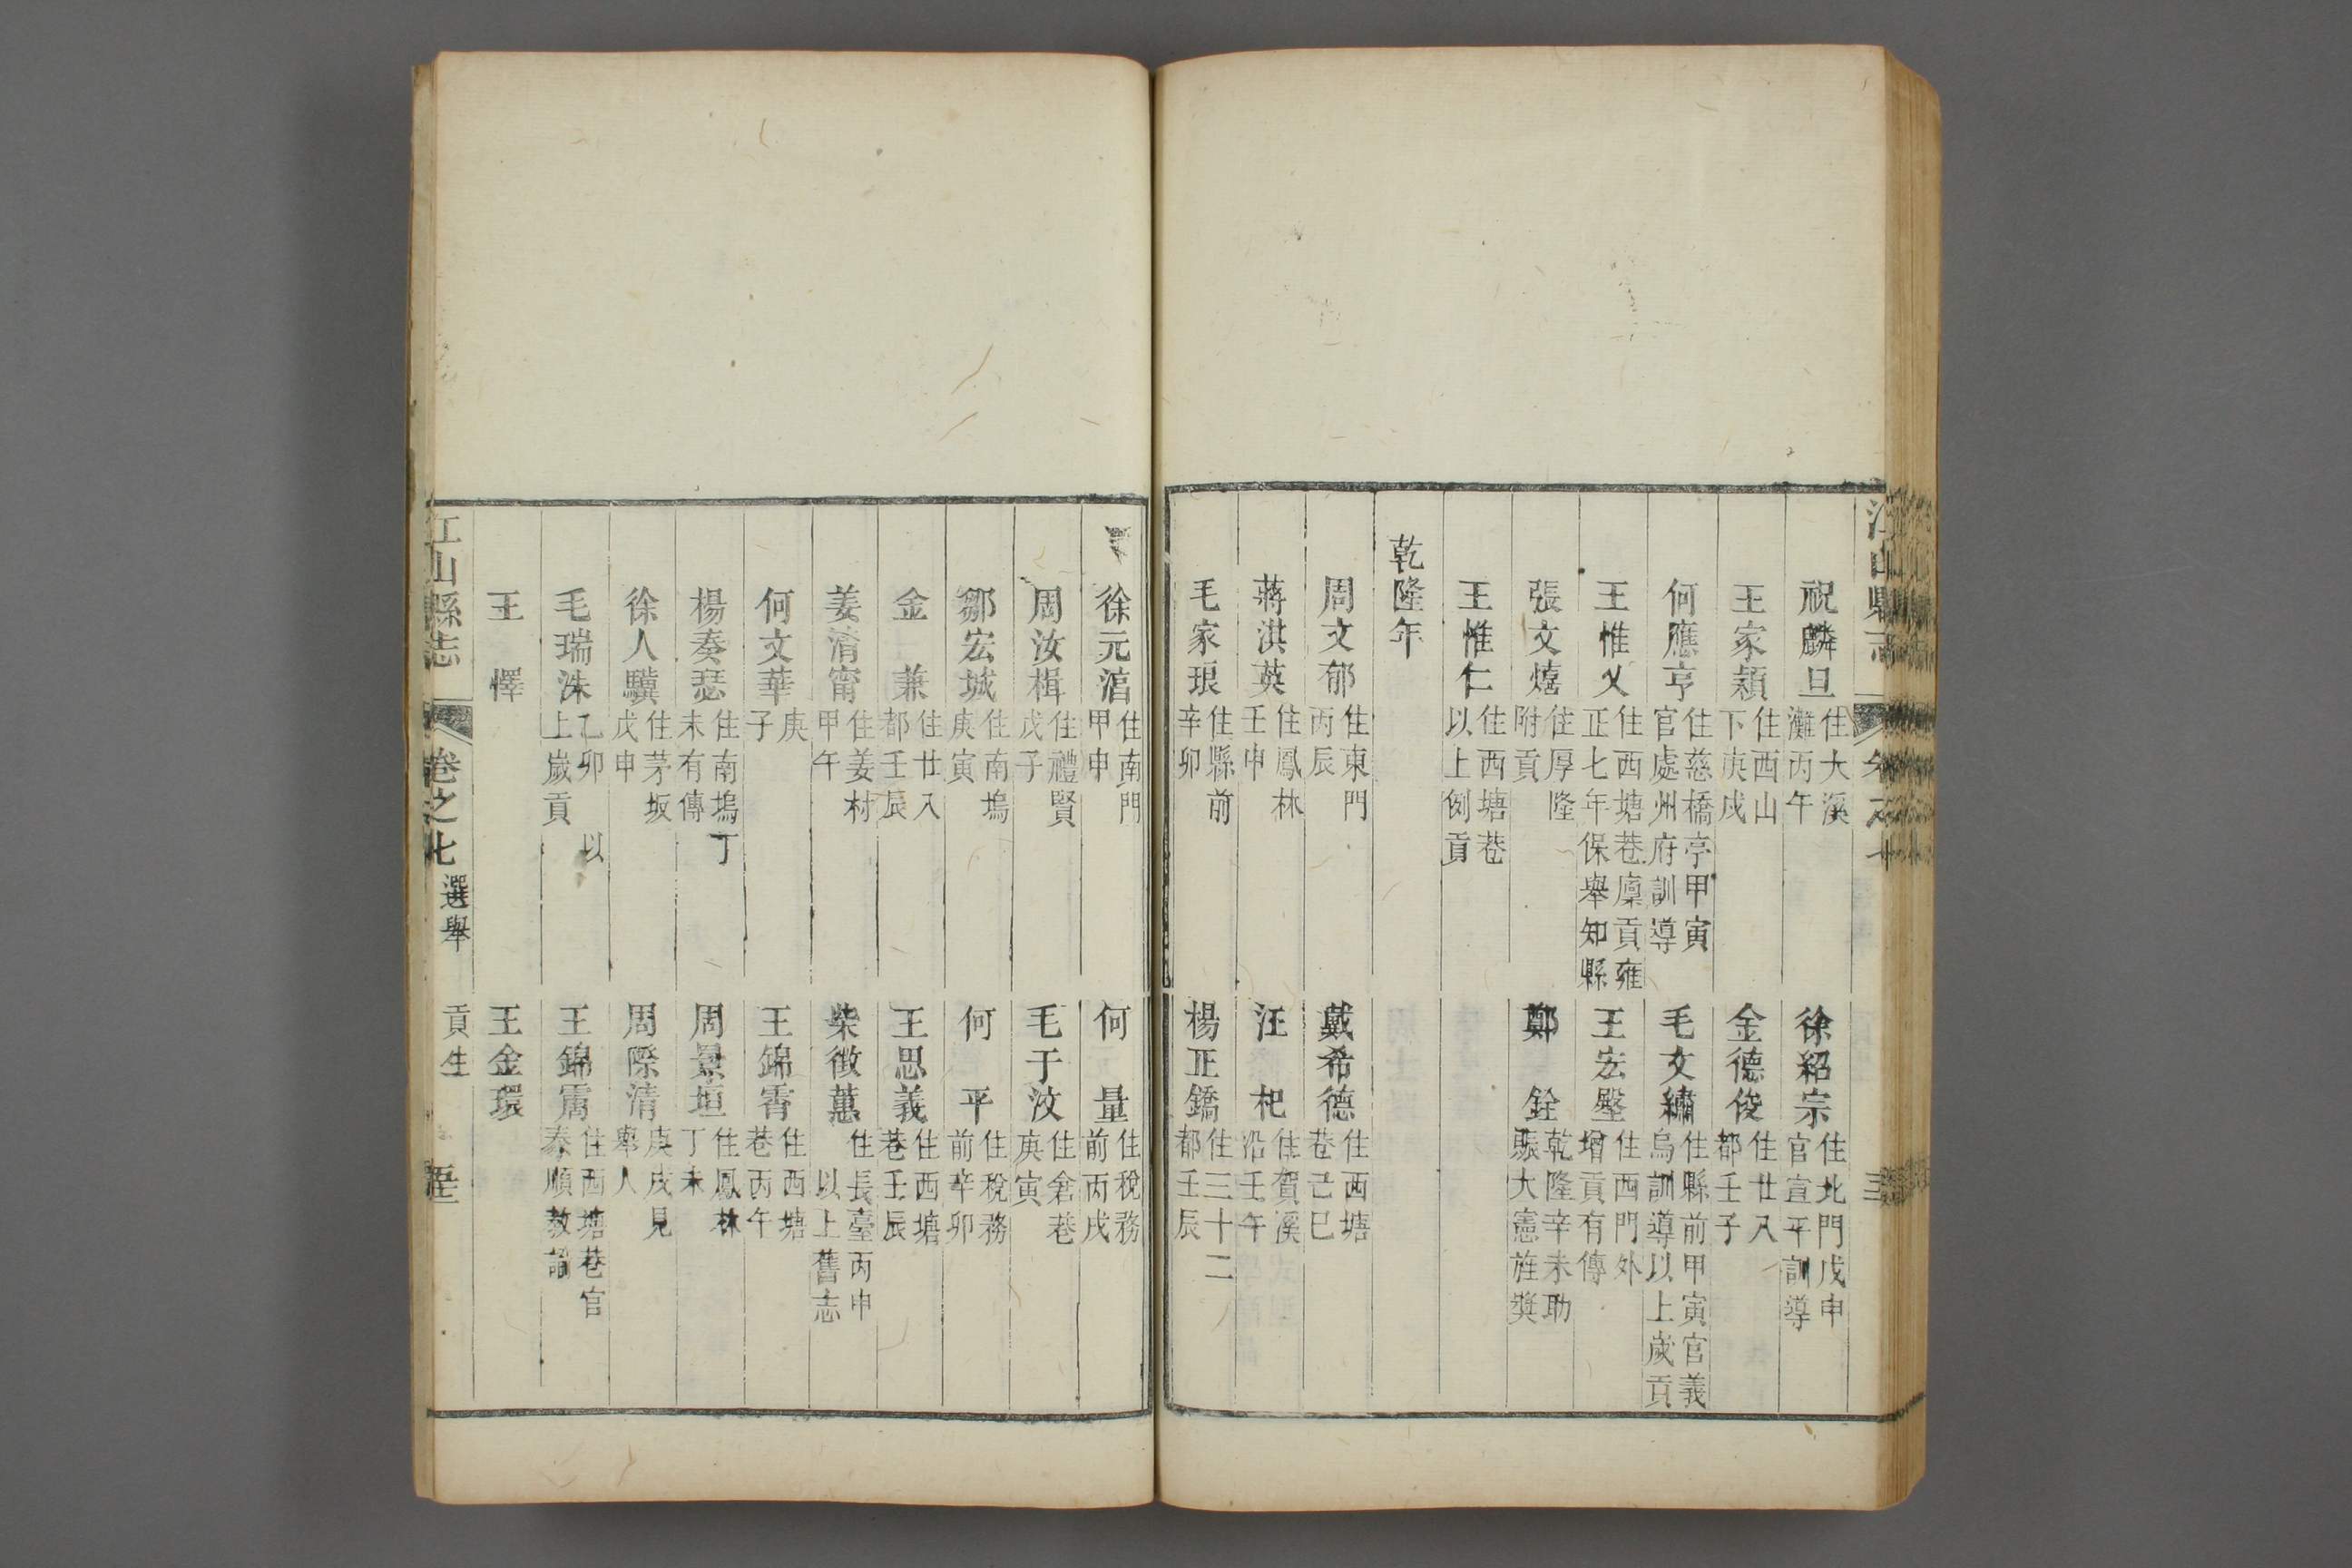 江山縣志
祝麟旦 住大溪灘丙午
徐紹宗 住北門戊申官宣平訓導
王家穎 住西山下庚戌
金德俊 住廿八都壬子
何應亨 住慈橋亭甲寅官處州府訓導
毛文繡 住縣前甲寅官義烏訓導以上歲貢
王惟乂 住西塘巷廩貢雍正七年保舉知縣
王宏壂 住西門外增貢有傳
張文熺 住厚隆附貢
鄭銓 乾隆辛未助賑大憲旌獎
王惟仁 住西塘巷以上例貢
乾隆年
周文郁 住東門丙辰
戴希德 住西塘巷己巳
蔣淇英 住鳳林壬申
汪杞 住賀溪沿壬午
毛家琅 住縣前辛卯
楊正鐈 住三十二都壬辰
徐元湻 住南門甲申
何量 住稅務前丙戌
周汝楫 住禮賢戊子
毛于汶 住倉巷庚寅
鄒宏城 住南塢庚寅
何平 住稅務前辛卯
金兼 住廿八都壬辰
王思義 住西塘巷壬辰
姜清甯 住姜村甲午
柴徵蕙 住長臺丙申以上舊志
何文華 庚子
王錦霄 住西塘巷丙午
楊奏瑟 住南塢丁未有傳
周景垣 住鳳林丁未
徐人驥 住茅坂戊申
周際清 庚戌見舉人
毛瑞洙 乙卯以上歲貢
王錦霱 住西塘巷官泰順教諭
王懌
王金環
江山縣志 卷之七 選舉 貢生